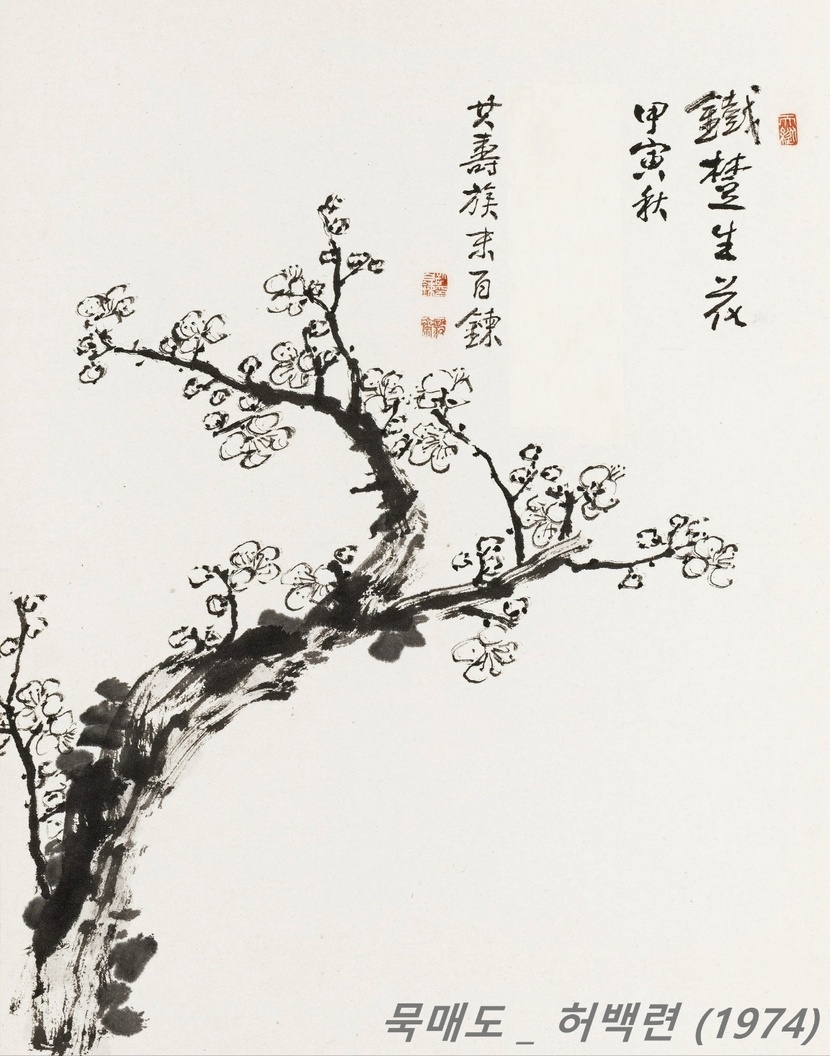 鐵楚生花
甲寅秋
壽族末百鍊
묵매도 _ 허백련 (1974)